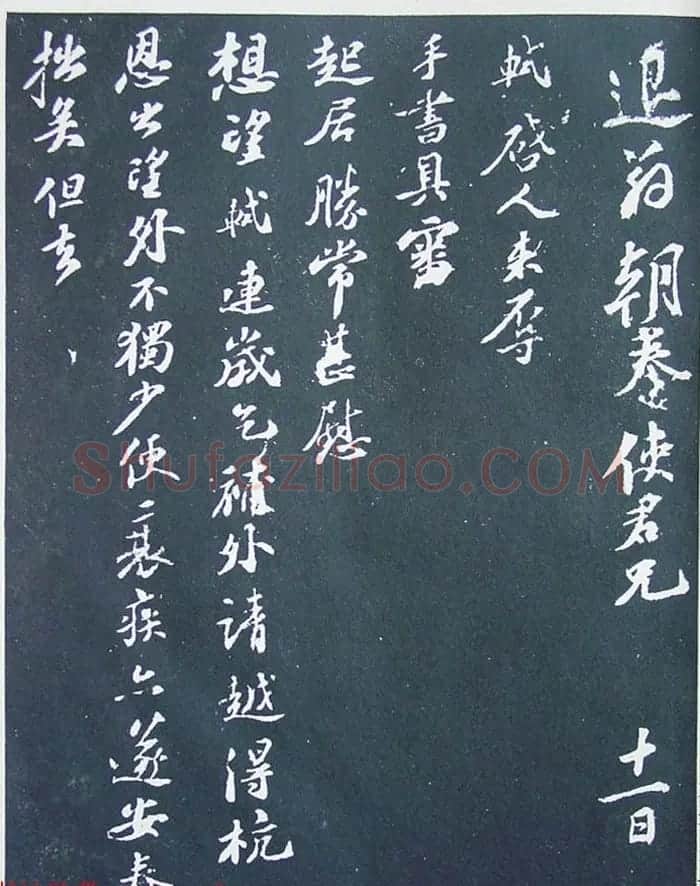 退翁朝奉使君兄 十一日
軾啓人来辱
手書具審
起居勝常甚慰
想望軾連歲乞補外請越得杭
恩出望外不獨少便衰疾亦遂安養
拙矣但去
Shufaziliao.COM